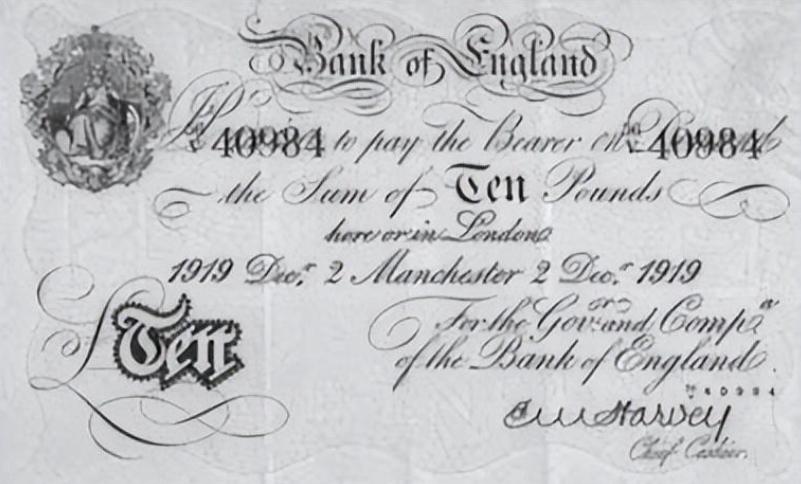 Bank of England
40984 to pay the Bearer on 40984
the Sum of Ten Pounds
here or in London
1919 Decr. 2 Manchester 2 Decr. 1919
For the Govr. and Compa.
of the Bank of England.
40984
£Ten
Chief Cashier.